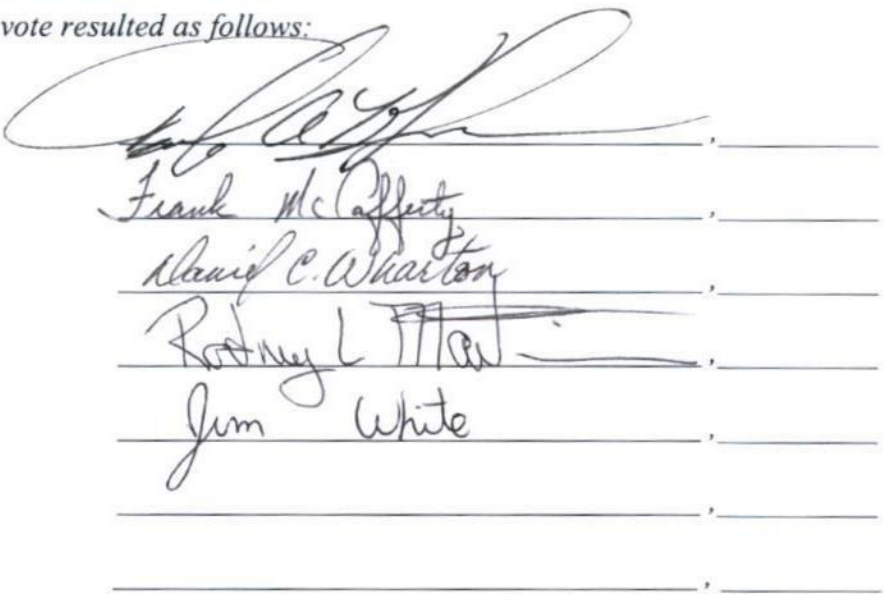 vote resulted as follows:
,
Frank McCafferty,
Daniel C. Wharton,
Rodney L,
Jim White,
,
,